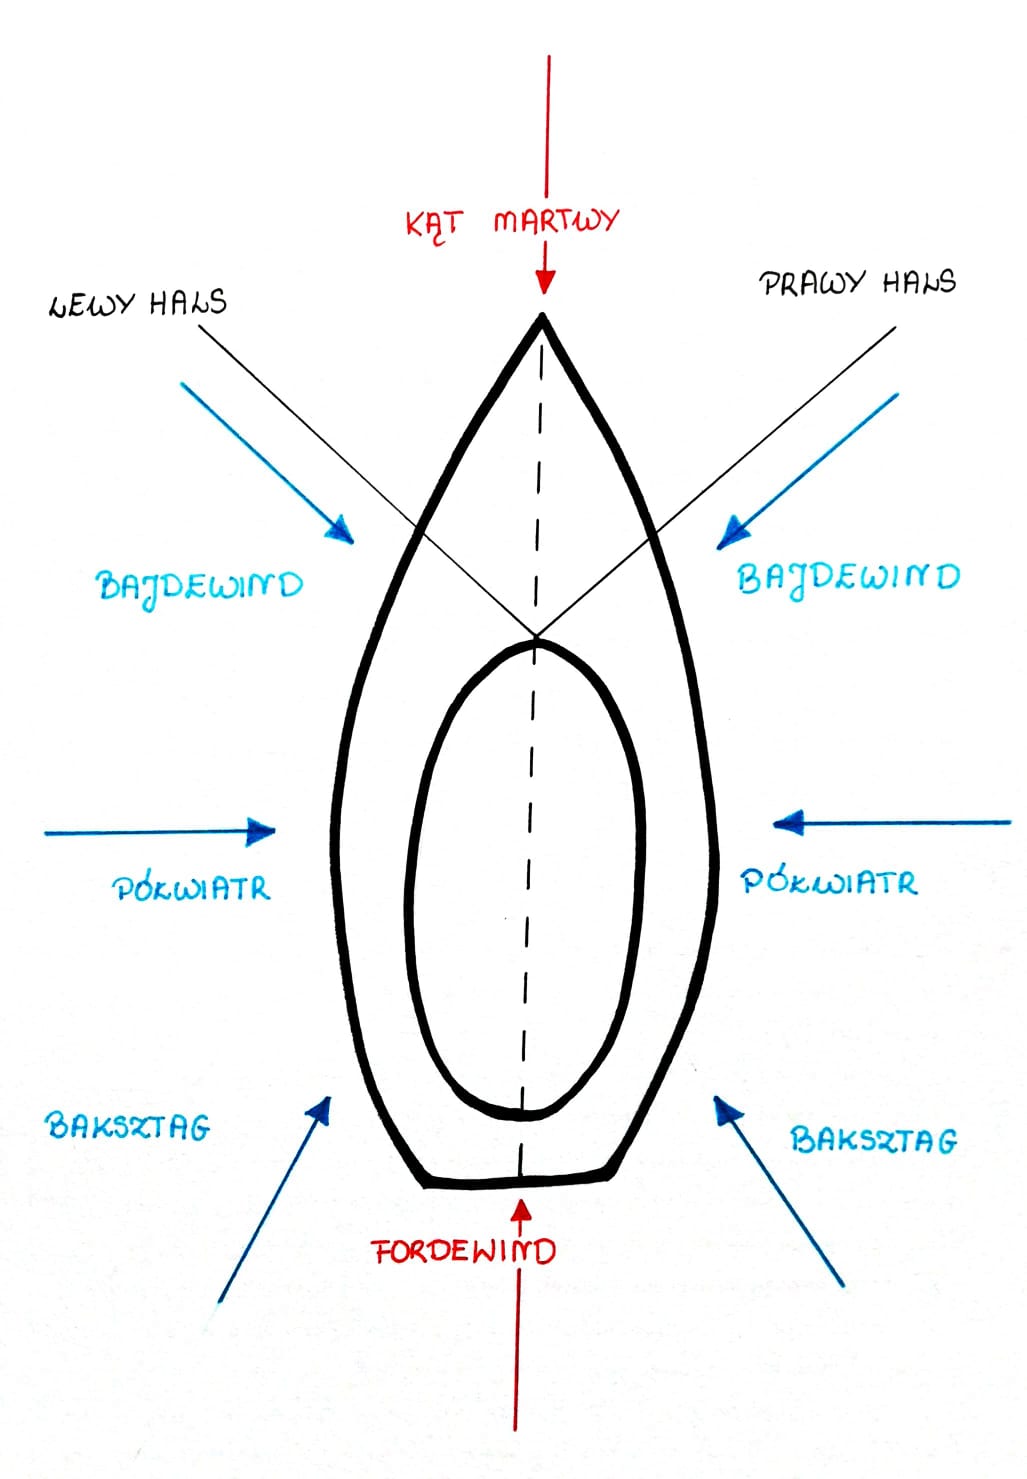 KĄT MARTWY
LEWY HALS
PRAWY HALS
BAJDEWIND
BAJDEWIND
PÓŁWIATR
PÓŁWIATR
BAKSZTAG
BAKSZTAG
FORDEWIND